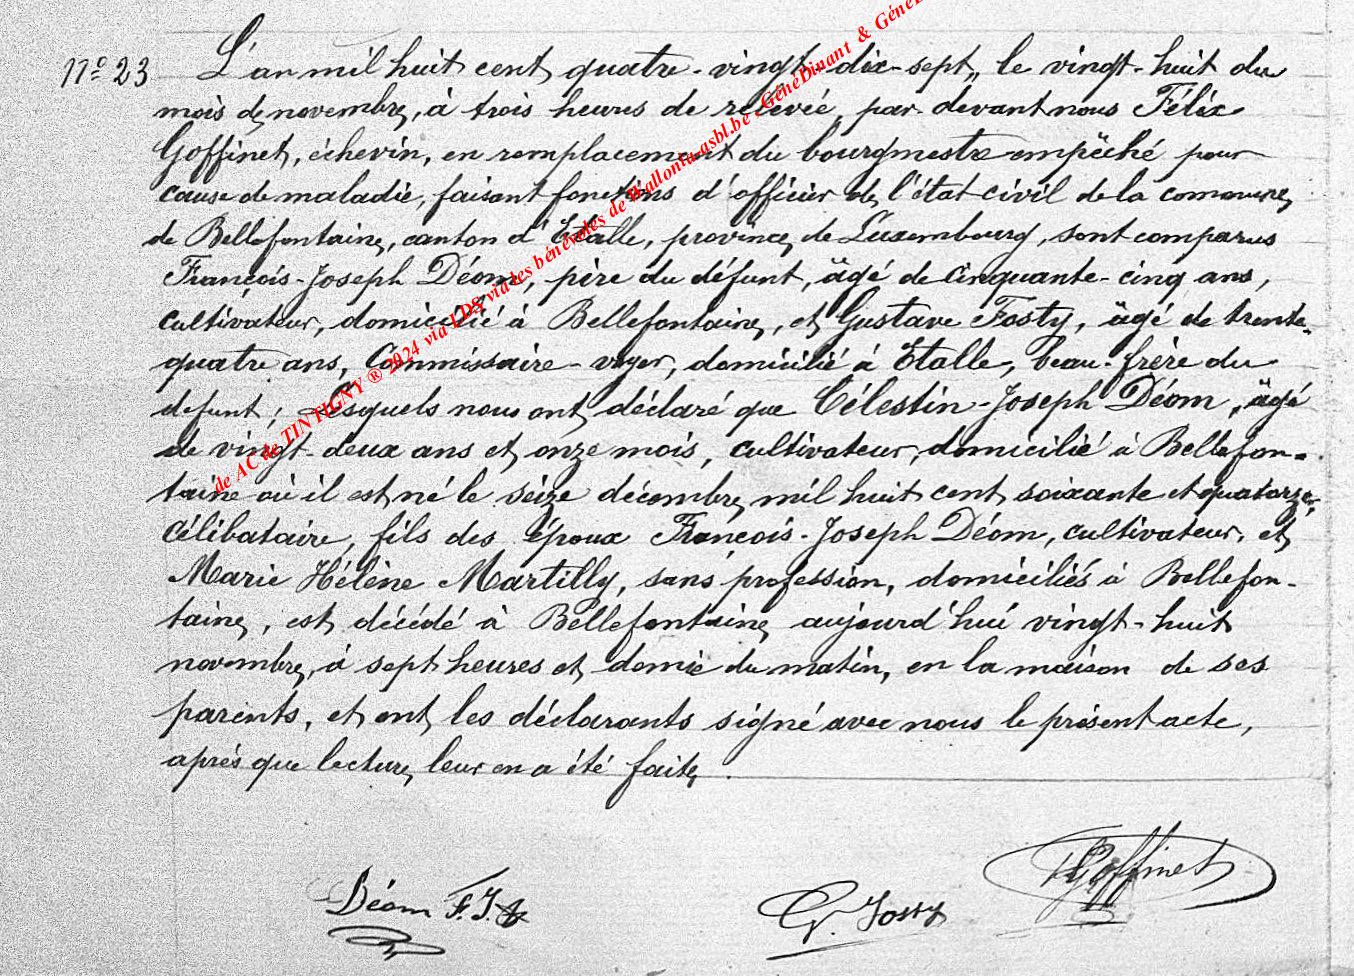 N° 23 L'an mil huit cent quatre-vingt-dix-sept, le vingt-huit du
mois de novembre, à trois heures de relevée par-devant nous Félix
Goffinet, échevin, en remplacement du bourgmestre empêché pour
cause de maladie, faisant fonctions d'officier de l'état civil de la commune
de Bellefontaine, canton d'Etalle, province de Luxembourg, sont comparus
François-Joseph Déom, père du défunt, âgé de cinquante-cinq ans,
cultivateur, domicilié à Bellefontaine, et Gustave Fosty, âgé de trente-
quatre ans, Commissaire-voyer, domicilié à Etalle, beau-frère du
défunt; lesquels nous ont déclaré que Célestin-Joseph Déom, âgé
de vingt-deux ans et onze mois, cultivateur, domicilié à Bellefon-
taine où il est né le seize décembre mil huit cent soixante et quatorze,
célibataire, fils des époux François-Joseph Déom, cultivateur, et
Marie Hélène Martilly, sans profession, domiciliés à Bellefon-
taine, est décédé à Bellefontaine aujourd'hui vingt-huit
novembre, à sept heures et demie du matin, en la maison de ses
parents, et ont les déclarants signé avec nous le présent acte,
après que lecture leur en a été faite.
Déom F. J.
G. Fosty
Goffinet
de AC de TINTIGNY ® 2024 via LDS via les bénévoles de Wallonia-asbl.be - GénéDinant & Géné